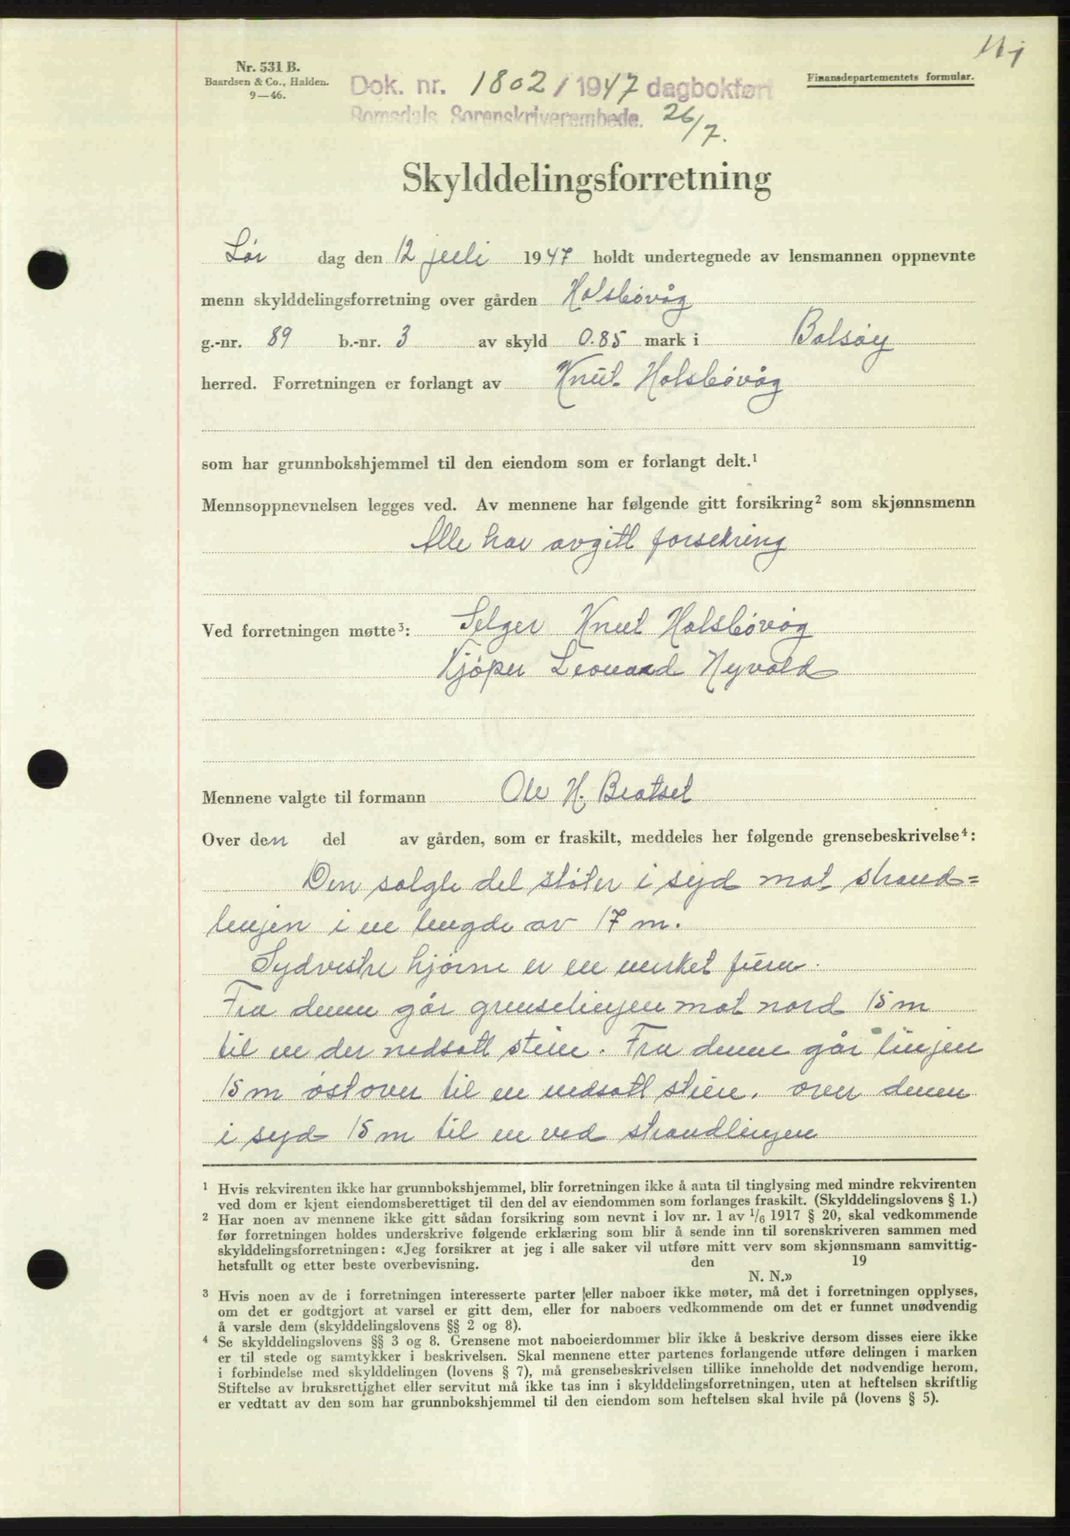 Nr. 531 B.
Baardsen & Co., Halden.
9—46.
Dok. nr. 1802 / 1947 dagbokført
Romsdals Sorenskriverembede. 26/7.
Finansdepartementets formular.
Skylddelingsforretning
Lør dag den 12 juli 1947 holdt undertegnede av lensmannen oppnevnte
menn skylddelingsforretning over gården Holsbøvåg
g.-nr. 89 b.-nr. 3 av skyld 0.85 mark i Bolsøy
herred. Forretningen er forlangt av Knut Holsbøvåg
som har grunnbokshjemmel til den eiendom som er forlangt delt.¹
Mennsoppnevnelsen legges ved. Av mennene har følgende gitt forsikring² som skjønnsmenn
Alle har avgitt forsekring
Ved forretningen møtte³: Selger Knut Holsbøvåg
Kjøper Leonard Nyvold
Mennene valgte til formann Ole H. Beatset
Over den del av gården, som er fraskilt, meddeles her følgende grensebeskrivelse⁴:
Den solgte del støter i syd mot strand=
linjen i en lengde av 17 m.
Sydvestre hjørne er en merket furu.
Fra denne går grenselinjen mot nord 15 m
til en der nedsatt stein. Fra denne går linjen
15 m østover til en nedsatt stein, over denne
i syd 15 m til en ved strandlinjen
¹ Hvis rekvirenten ikke har grunnbokshjemmel, blir forretningen ikke å anta til tinglysing med mindre rekvirenten
ved dom er kjent eiendomsberettiget til den del av eiendommen som forlanges fraskilt. (Skylddelingslovens § 1.)
² Har noen av mennene ikke gitt sådan forsikring som nevnt i lov nr. 1 av 1/6 1917 § 20, skal vedkommende
før forretningen holdes underskrive følgende erklæring som blir å sende inn til sorenskriveren sammen med
skylddelingsforretningen: «Jeg forsikrer at jeg i alle saker vil utføre mitt verv som skjønnsmann samvittig-
hetsfullt og etter beste overbevisning. den 19
N. N.»
³ Hvis noen av de i forretningen interesserte parter eller naboer ikke møter, må det i forretningen opplyses,
om det er godtgjort at varsel er gitt dem, eller for naboers vedkommende om det er funnet unødvendig
å varsle dem (skylddelingslovens §§ 2 og 8).
⁴ Se skylddelingslovens §§ 3 og 8. Grensene mot naboeierdommer blir ikke å beskrive dersom disses eiere ikke
er til stede og samtykker i beskrivelsen. Skal mennene etter partenes forlangende utføre delingen i marken
i forbindelse med skylddelingen (lovens § 7), må grensebeskrivelsen tillike inneholde det nødvendige herom.
Stiftelse av bruksrettighet eller servitut må ikke tas inn i skylddelingsforretningen, uten at heftelsen skriftlig
er vedtatt av den som har grunnbokshjemmel til den eiendom som heftelsen skal hvile på (lovens § 5).